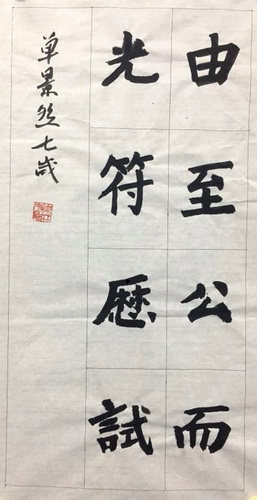 由至公而
光符歷試
单景然七歲